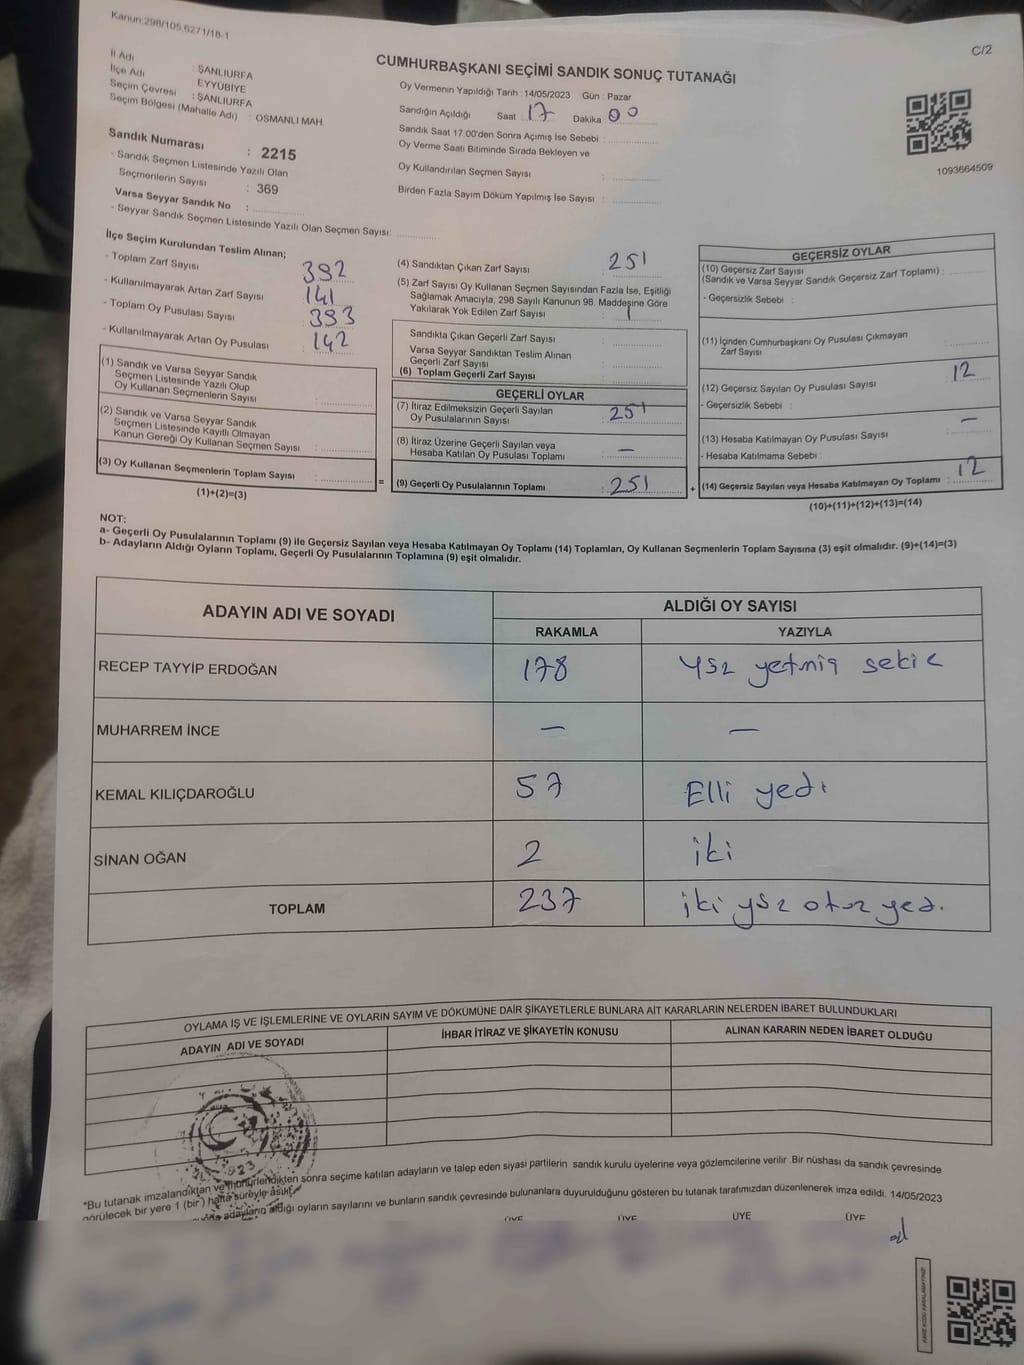 Kanun:298/105.6271/18-1
C/2
İl Adı : ŞANLIURFA
İlçe Adı EYYÜBİYE
Seçim Çevresi : ŞANLIURFA
Seçim Bölgesi (Mahalle Adı) : OSMANLI MAH.
Sandık Numarası : 2215
- Sandık Seçmen Listesinde Yazılı Olan
Seçmenlerin Sayısı : 369
Varsa Seyyar Sandık No :
- Seyyar Sandık Seçmen Listesinde Yazılı Olan Seçmen Sayısı:
CUMHURBAŞKANI SEÇİMİ SANDIK SONUÇ TUTANAĞI
Oy Vermenin Yapıldığı Tarih : 14/05/2023 Gün : Pazar
Sandığın Açıldığı Saat : 17 Dakika : 00
Sandık Saat 17:00'den Sonra Açımış İse Sebebi :
Oy Verme Saati Bitiminde Sırada Bekleyen ve
Oy Kullandırılan Seçmen Sayısı :
Birden Fazla Sayım Döküm Yapılmış İse Sayısı :
1093664509
İlçe Seçim Kurulundan Teslim Alınan;
- Toplam Zarf Sayısı 392
- Kullanılmayarak Artan Zarf Sayısı 141
- Toplam Oy Pusulası Sayısı 393
- Kullanılmayarak Artan Oy Pusulası : 142
(1) Sandık ve Varsa Seyyar Sandık
Seçmen Listesinde Yazılı Olup
Oy Kullanan Seçmenlerin Sayısı :
(2) Sandık ve Varsa Seyyar Sandık
Seçmen Listesinde Kayıtlı Olmayan
Kanun Gereği Oy Kullanan Seçmen Sayısı :
(3) Oy Kullanan Seçmenlerin Toplam Sayısı :
(1)+(2)=(3)
=
(4) Sandıktan Çıkan Zarf Sayısı : 251
(5) Zarf Sayısı Oy Kullanan Seçmen Sayısından Fazla İse, Eşitliği
Sağlamak Amacıyla, 298 Sayılı Kanunun 98. Maddesine Göre
Yakılarak Yok Edilen Zarf Sayısı :
Sandıkta Çıkan Geçerli Zarf Sayısı :
Varsa Seyyar Sandıktan Teslim Alınan
Geçerli Zarf Sayısı :
(6) Toplam Geçerli Zarf Sayısı :
GEÇERLİ OYLAR
(7) İtiraz Edilmeksizin Geçerli Sayılan
Oy Pusulalarının Sayısı : 251
(8) İtiraz Üzerine Geçerli Sayılan veya
Hesaba Katılan Oy Pusulası Toplamı : —
(9) Geçerli Oy Pusulalarının Toplamı : 251
+
GEÇERSİZ OYLAR
(10) Geçersiz Zarf Sayısı
(Sandık ve Varsa Seyyar Sandık Geçersiz Zarf Toplamı) :
- Geçersizlik Sebebi :
(11) İçinden Cumhurbaşkanı Oy Pusulası Çıkmayan
Zarf Sayısı :
(12) Geçersiz Sayılan Oy Pusulası Sayısı : 12
- Geçersizlik Sebebi :
(13) Hesaba Katılmayan Oy Pusulası Sayısı : —
- Hesaba Katılmama Sebebi :
(14) Geçersiz Sayılan veya Hesaba Katılmayan Oy Toplamı : 12
(10)+(11)+(12)+(13)=(14)
NOT:
a- Geçerli Oy Pusulalarının Toplamı (9) ile Geçersiz Sayılan veya Hesaba Katılmayan Oy Toplamı (14) Toplamları, Oy Kullanan Seçmenlerin Toplam Sayısına (3) eşit olmalıdır. (9)+(14)=(3)
b- Adayların Aldığı Oyların Toplamı, Geçerli Oy Pusulalarının Toplamına (9) eşit olmalıdır.
ADAYIN ADI VE SOYADI ALDIĞI OY SAYISI
RAKAMLA YAZIYLA
RECEP TAYYİP ERDOĞAN 178 yüz yetmiş sekiz
MUHARREM İNCE — —
KEMAL KILIÇDAROĞLU 57 Elli yedi
SİNAN OĞAN 2 iki
TOPLAM 237 iki yüz otuz yedi
OYLAMA İŞ VE İŞLEMLERİNE VE OYLARIN SAYIM VE DÖKÜMÜNE DAİR ŞİKAYETLERLE BUNLARA AİT KARARLARIN NELERDEN İBARET BULUNDUKLARI
ADAYIN ADI VE SOYADI İHBAR İTİRAZ VE ŞİKAYETİN KONUSU ALINAN KARARIN NEDEN İBARET OLDUĞU
*Bu tutanak imzalandıktan ve mühürlendikten sonra seçime katılan adayların ve talep eden siyasi partilerin sandık kurulu üyelerine veya gözlemcilerine verilir .Bir nüshası da sandık çevresinde
görülecek bir yere 1 (bir ) hafta süreyle asılır.
adayların aldığı oyların sayılarını ve bunların sandık çevresinde bulunanlara duyurulduğunu gösteren bu tutanak tarafımızdan düzenlenerek imza edildi. 14/05/2023
ÜYE ÜYE ÜYE ÜYE